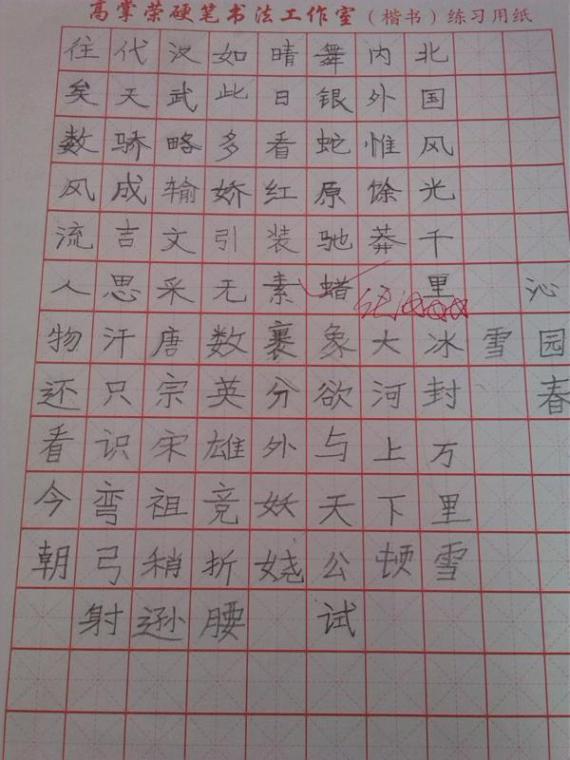 高掌荣硬笔书法工作室（楷书）练习用纸
沁园春
雪
北国风光千里冰封万里雪
内外惟馀莽大河上下顿
舞银蛇原驰蜡象欲与天公试
晴日看红装素裹分外妖娆
如此多娇引无数英雄竞折腰
汉武略输文采唐宗宋祖稍逊
代天骄成吉思汗只识弯弓射
往矣数风流人物还看今朝